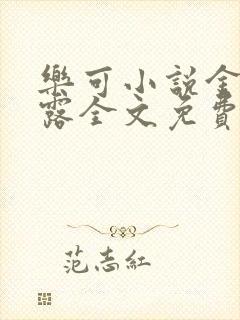 樂可小說金
露全文免費
范志紅